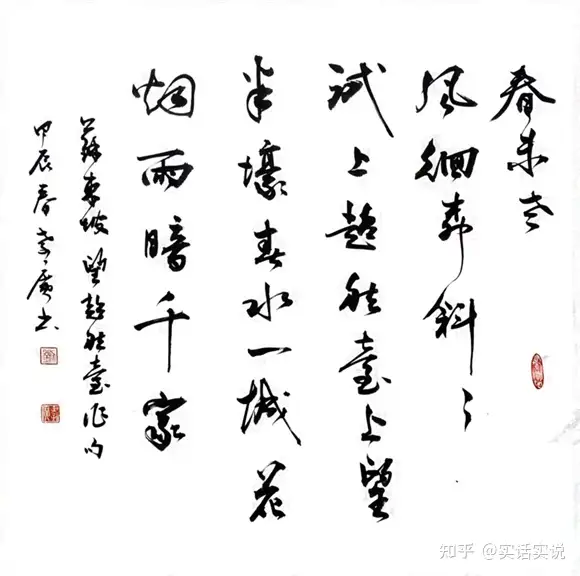 春未老
风細柳斜々
试上超然臺上望
半壕春水一城花
烟雨暗千家
蘇東坡望超然臺作句
甲辰春廣书
知乎 @实话实说